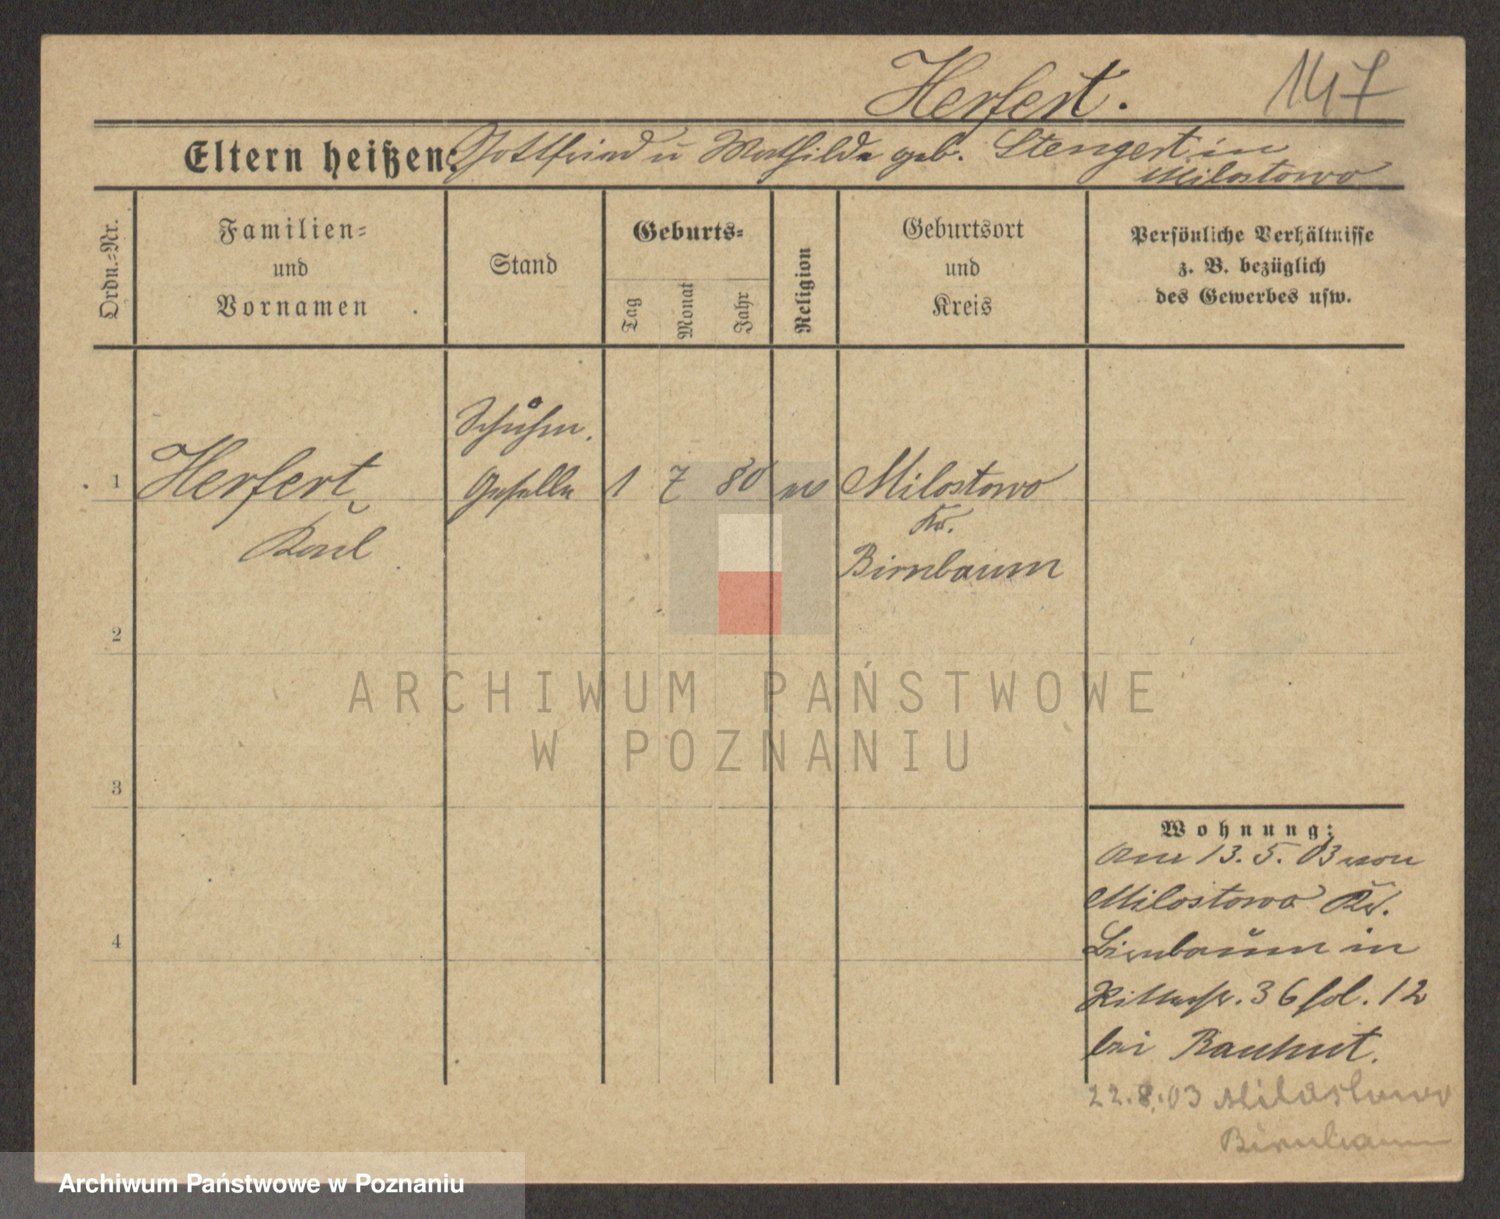 Herfert. 147
Eltern heißen: Gottfried u Mathilde geb. Stengert in
Milostowo
Ordn.-Nr.
Familien-
und
Vornamen
Stand
Geburts-
Tag
Monat
Jahr
Religion
Geburtsort
und
Kreis
Persönliche Verhältnisse
z. B. bezüglich
des Gewerbes usw.
Schuhm.
1 Herfert, Geselle 1 7 80 ev Milostowo
Karl
Kr.
Birnbaum
2
3
4
Wohnung:
Am 13.5.03 von
Milostowo Kr.
Birnbaum in
Ritterstr. 36 fol. 12
bei Bauhut.
22.8.03 Milostowo
Birnbaum
ARCHIWUM PAŃSTWOWE
W POZNANIU
Archiwum Państwowe w Poznaniu